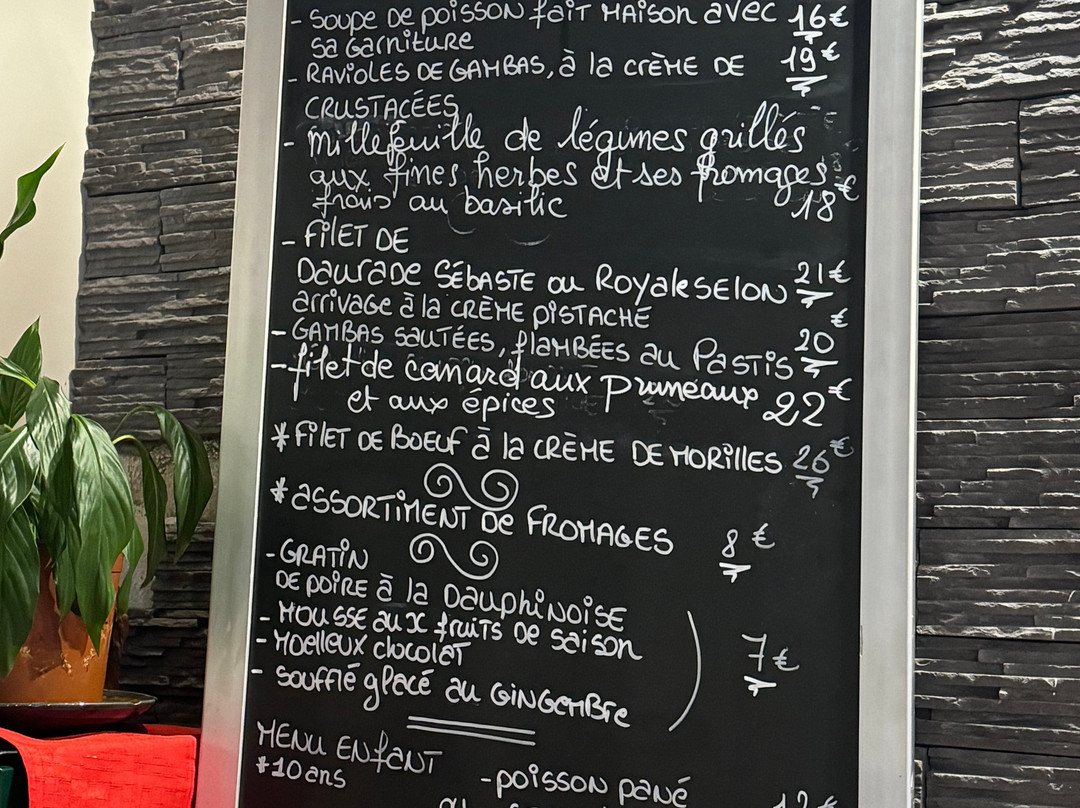 - SOUPE DE POISSON FAIT MAISON avec 16€
SA GARNITURE
- RAVIOLES DE GAMBAS, à la CRÈME DE 19€
CRUSTACÉES
- millefeuille de légumes grillés
aux fines herbes et ses fromages
frais au basilic 18€
- FILET DE
DAURADE SÉBASTE ou RoyaleSELON 21€
arrivage à la CRÈME PISTACHE
- GAMBAS SAUTÉES, flAMBÉES au PASTIS 20€
- filet de canard aux pruneaux
et aux épices 22€
* FILET DE BOEUF à la CRÈME DE MORILLES 26€
* ASSORTIMENT De FROMAGES 8€
- GRATIN
DE POIRE à la DAUPHINOISE
- MOUSSE aux fruits De saison
- MOELLEUX chocolat 7€
- Soufflé glacé au GINGEMBRE
MENU ENFANT
*10 ans
- POISSON PANÉ